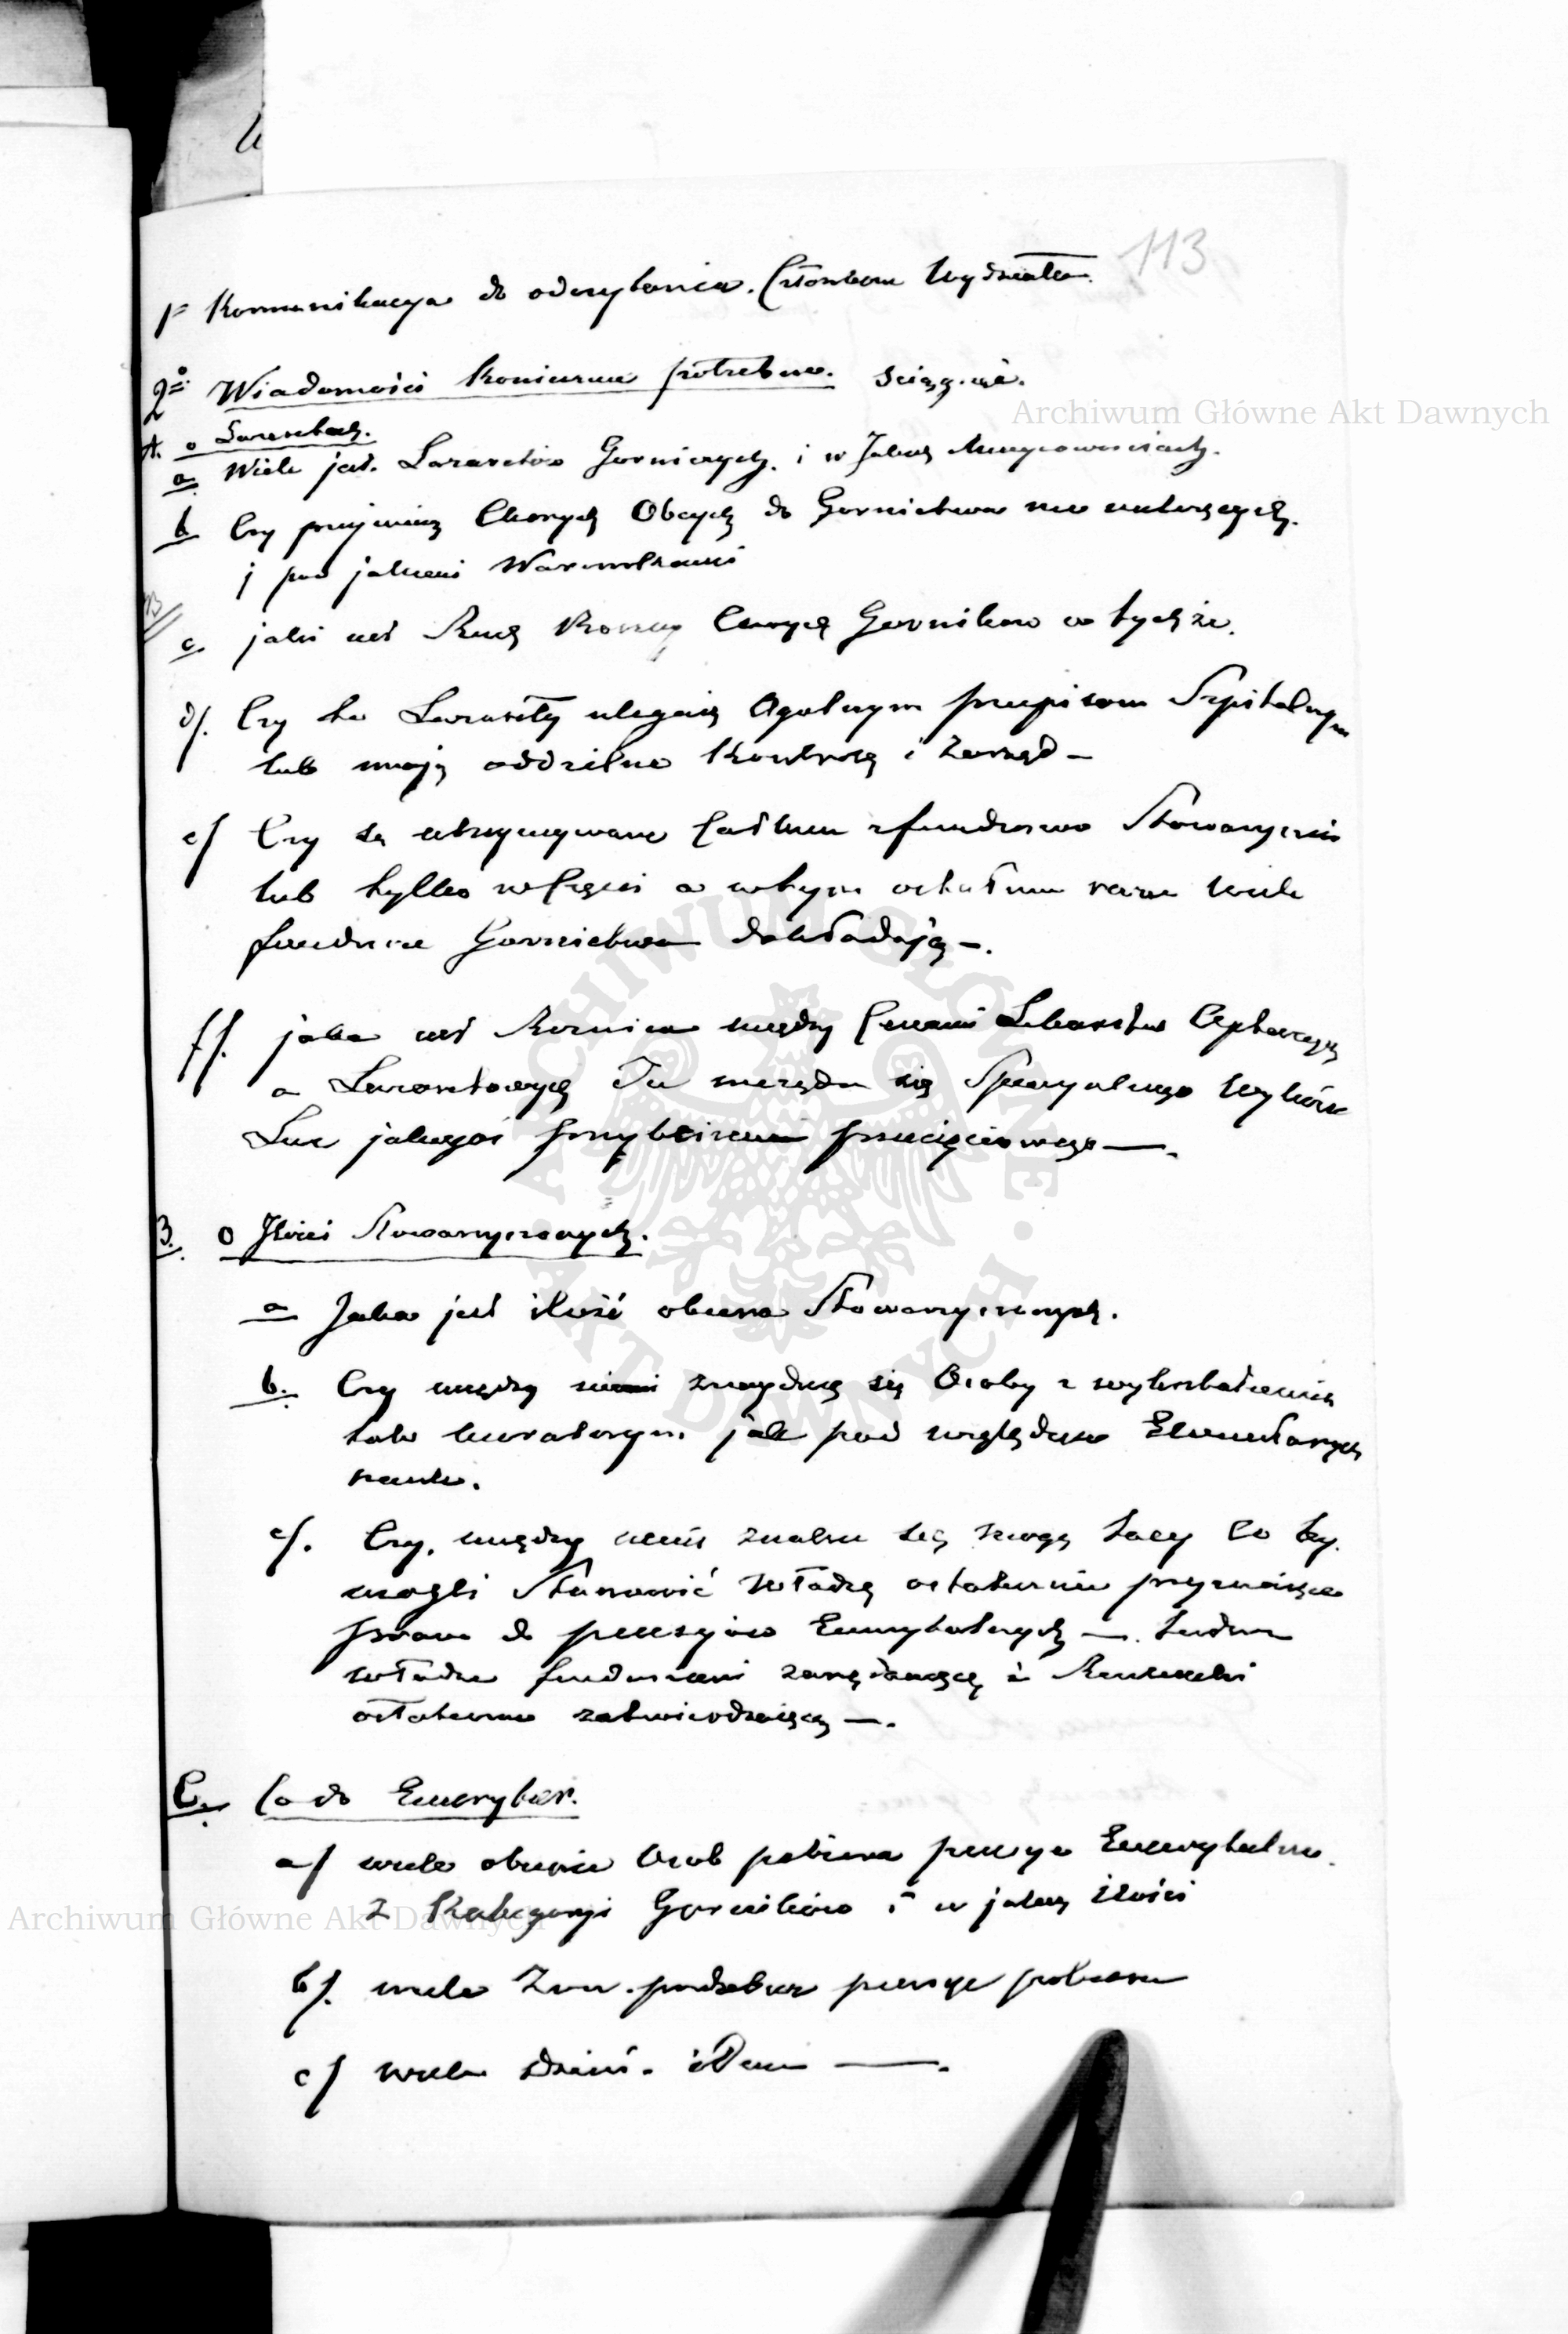 113
1º Komunikacya do odczytania. Członkom Wydziału.
2º Wiadomości koniecznie potrzebne. ściągnąć.
A. o Lazaretach.
a Wiele jest Lazaretów Gorniczych. i w jakich Mieyscowościach.
b Czy przyjmują Chorych Obcych do Gornictwa nie należących.
i pod jakiemi Warunkami
c jaki jest Ruch Roczny Chorych Gorników w tychże.
d/. Czy te Lazarety ulegają Ogolnym przepisom Szpitalnym
lub mają oddzielne Kontrolę i Zarząd –
e/ Czy są utrzymywane całkiem z funduszów Stowarzyszenia
lub tylko w Części a w tym ostatnim razie wiele
fundusze Gornictwa dokładają –.
f/. jaka jest Roznica między Cenami Lekarstw Aptecznych
a Lazaretowych Tu nierządu się Specyalnego
Lecz jakiegoś przybliżenia przecięciowego —.
B. o Ilości Stowarzyszonych.
a Jaka jest ilość obecna Stowarzyszonych.
b. Czy między niemi znayduią się Osoby z wykształceniem
tak moralnym jak pod względem Elementarnych
nauk.
c/. Czy, między niemi znaleść się mogą tacy Co by
mogli Stanowić Władzę ostatecznie przyznaiącą
prawo do pensyiow Emerytalnych —. tudzież
władzę funduszami zarządzaiącą i Rachunki
ostatecznie zatwierdzaiącą —.
C. Co do Emerytur.
a/ wiele obecnie Osob pobiera pensye Emerytalne.
z Kategoryi Gorników i w jakiey Ilości
b/. wiele Żon. podobnież pensye pobiera
c/ wiele dzieci. idem —.
Archiwum Główne Akt Dawnych
Archiwum Główne Akt Dawnych
ARCHIWUM GŁÓWNE
AKT DAWNYCH